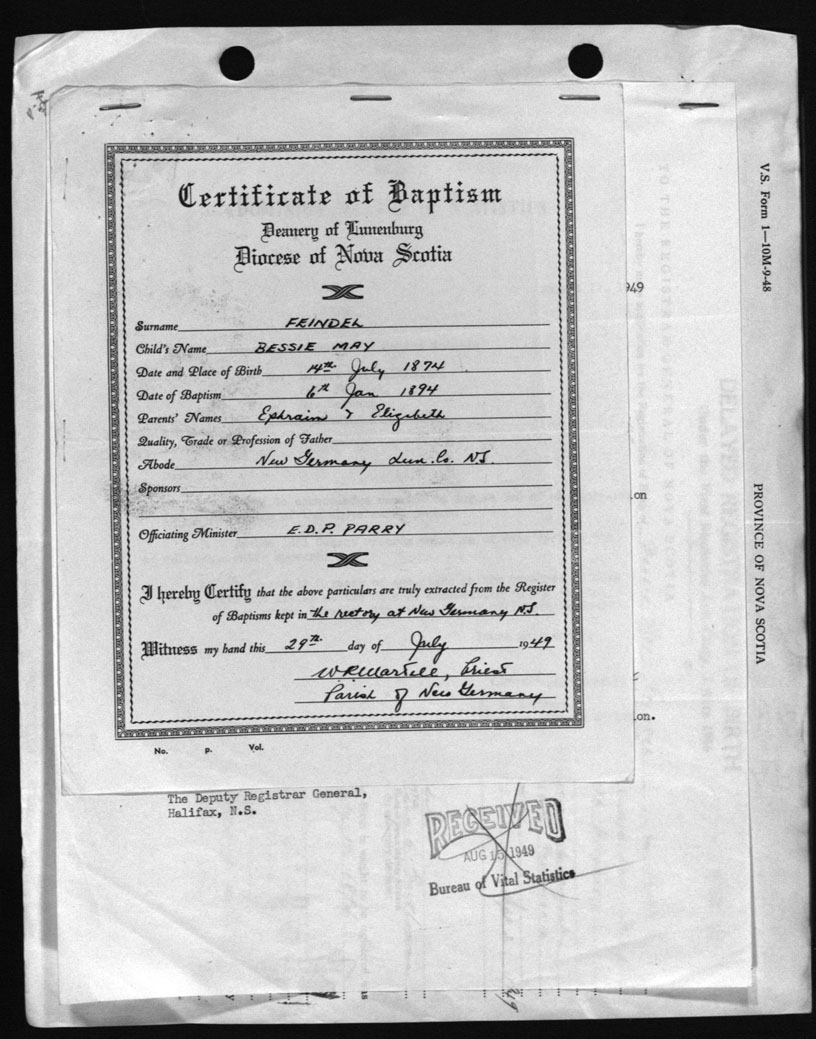 Certificate of Baptism
Deanery of Lunenburg
Diocese of Nova Scotia
Surname FEINDEL
Child's Name BESSIE MAY
Date and Place of Birth 14th July 1874
Date of Baptism 6th Jan 1894
Parents' Names Ephraim & Elizabeth
Quality, Trade or Profession of Father
Abode New Germany Lun. Co. N.S.
Sponsors
Officiating Minister E.D.P. PARRY
I hereby Certify that the above particulars are truly extracted from the Register
of Baptisms kept in the rectory at New Germany N.S.
Witness my hand this 29th day of July 1949
W R Martell, Priest
Parish of New Germany
No. P. Vol.
The Deputy Registrar General,
Halifax, N.S.
RECEIVED
AUG 15 1949
Bureau of Vital Statistics
V.S. Form 1—10M-9-48
PROVINCE OF NOVA SCOTIA
949
on
on.